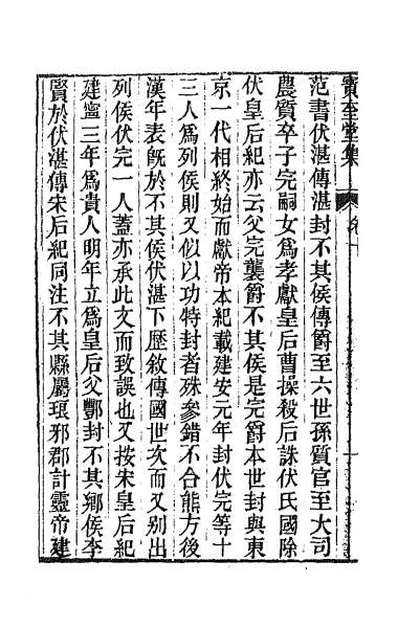 寶奎堂集
卷十
范書伏湛傳湛封不其侯傳爵至六世孫質官至大司
農質卒子完嗣女爲孝獻皇后曹操殺后誅伏氏國除
伏皇后紀亦云父完襲爵不其侯是完爵本世封與東
京一代相終始而獻帝本紀載建安元年封伏完等十
三人爲列侯則又似以功特封者殊參錯不合熊方後
漢年表旣於不其侯伏湛下歷敘傳國世次而又別出
列侯伏完一人蓋亦承此文而致誤也又按宋皇后紀
建寧三年爲貴人明年立爲皇后父酆封不其鄉侯李
賢於伏湛傳宋后紀同注不其縣屬琅邪郡計靈帝建